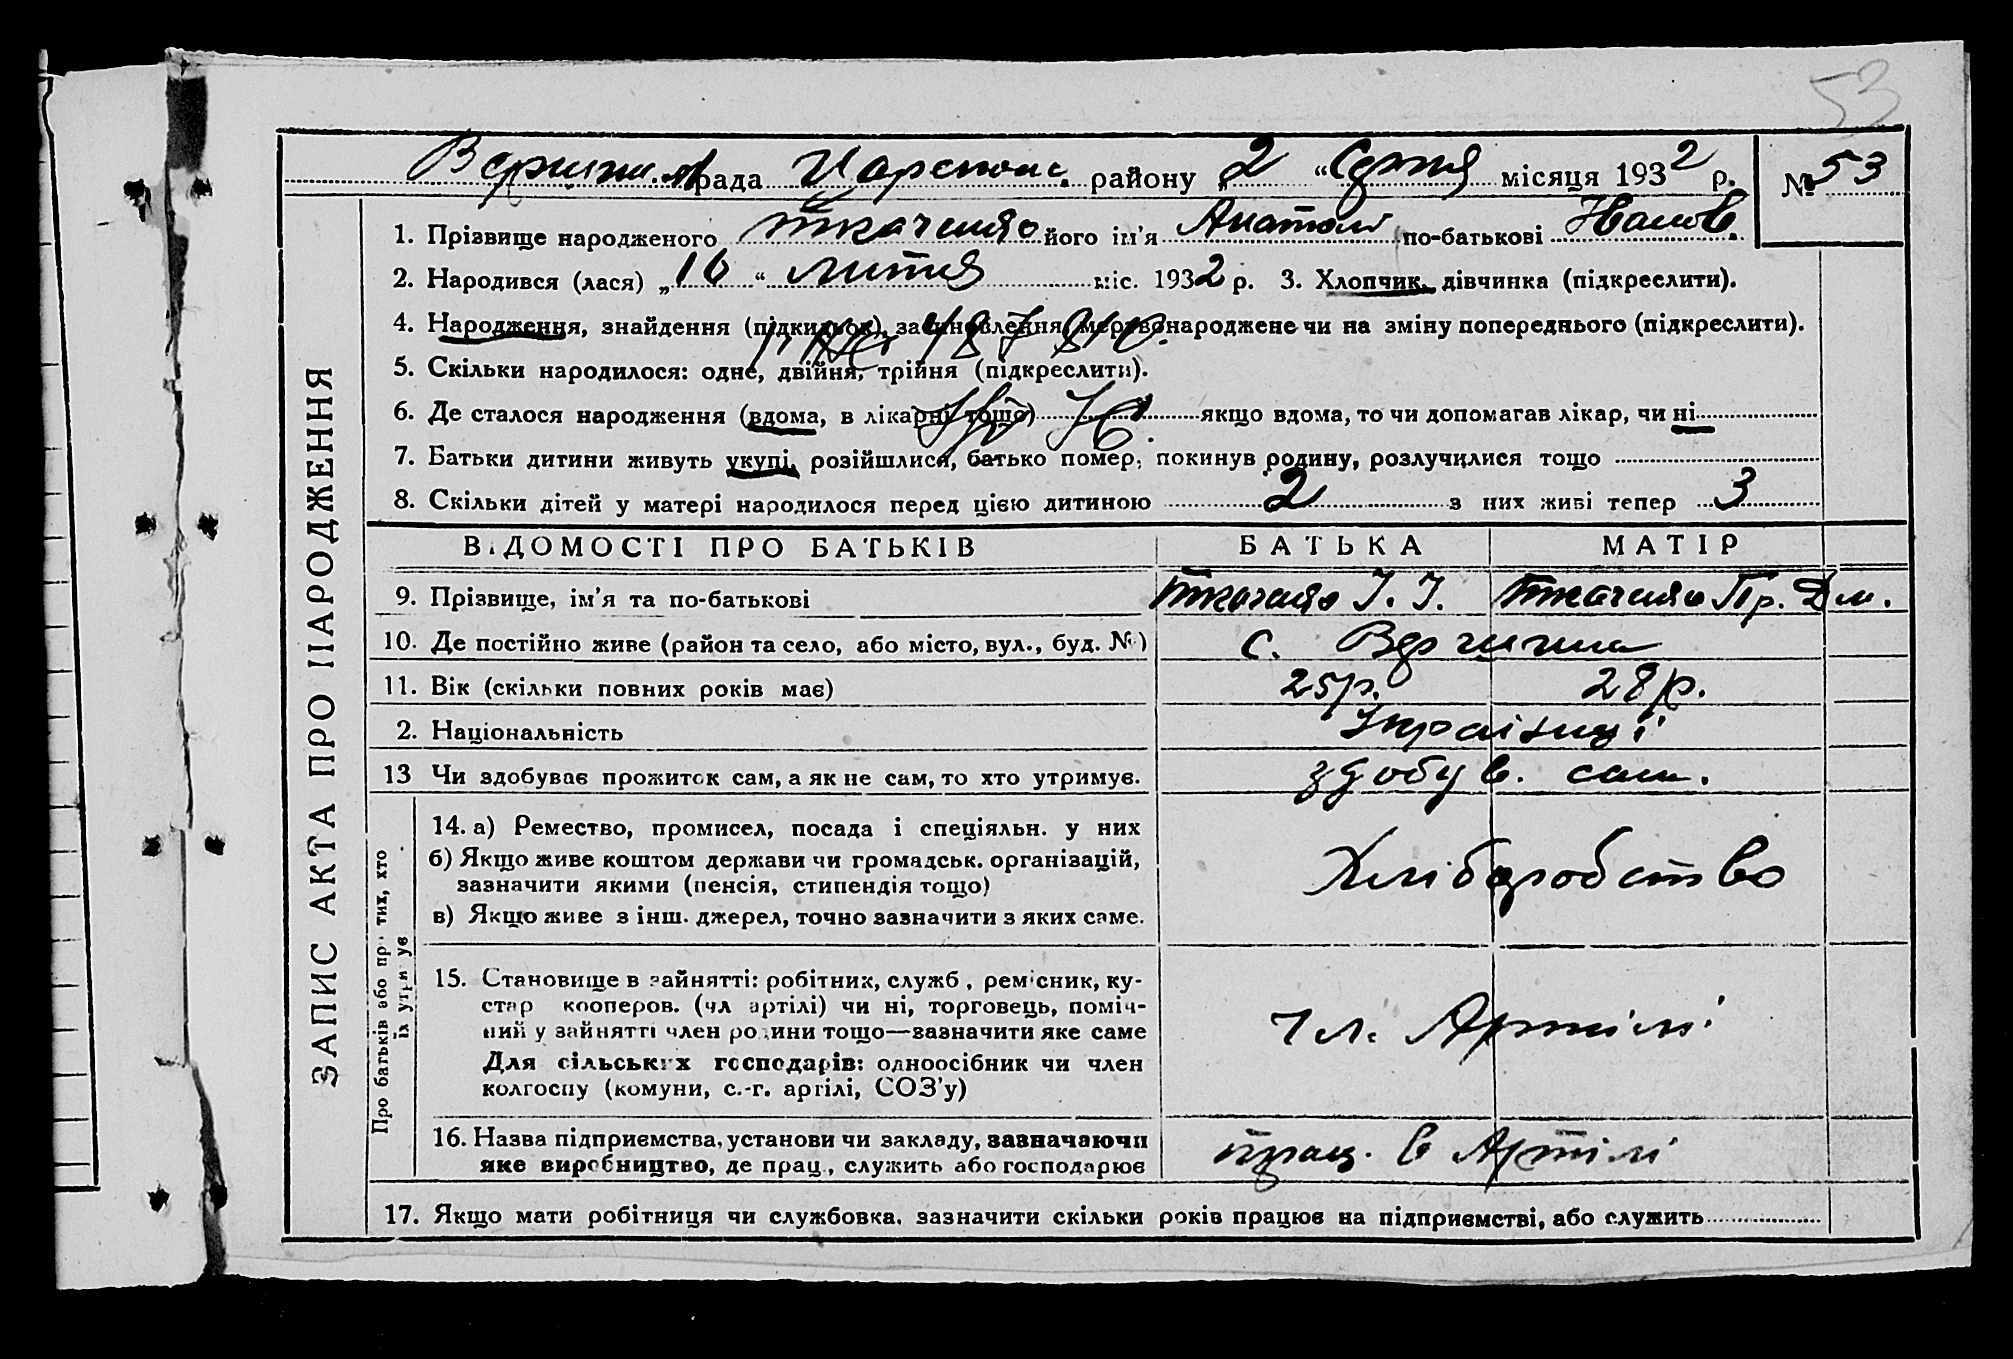 53
рада Царскокс. району „2“ Серпня місяця 1932 р. № 53
ЗАПИС АКТА ПРО НАРОДЖЕННЯ
1. Прізвище народженого Ткаченко його ім'я Анатолі по-батькові Іванов.
2. Народився (лася) „16“ лютня міс. 1932 р. 3. Хлопчик, дівчинка (підкреслити).
4. Народження, знайдення (підкидьок), застановлення, мертвонароджене чи на зміну попереднього (підкреслити).
5. Скільки народилося: одне, двійня, трійня (підкреслити).
6. Де сталося народження (вдома, в лікарні тощо) якщо вдома, то чи допомагав лікар, чи ні
7. Батьки дитини живуть укупі, розійшлися, батько помер, покинув родину, розлучилися тощо
8. Скільки дітей у матері народилося перед цією дитиною 2 з них живі тепер 3
ВІДОМОСТІ ПРО БАТЬКІВ БАТЬКА МАТІР
9. Прізвище, ім'я та по-батькові Ткаченко І. І. Ткаченко Пр. Дм.
10. Де постійно живе (район та село, або місто, вул., буд. №) с.
11. Вік (скільки повних років має) 25р. 28р.
2. Національність Українці
13 Чи здобуває прожиток сам, а як не сам, то хто утримує. здобув. сам.
Про батьків або про тих, хто їх утримує
14. а) Ремество, промисел, посада і спеціяльн. у них
б) Якщо живе коштом держави чи громадськ. організацій,
зазначити якими (пенсія, стипендія тощо)
в) Якщо живе з інш. джерел, точно зазначити з яких саме.
Хліборобство
15. Становище в зайнятті: робітник, служб., ремісник, ку-
стар кооперов. (чл артілі) чи ні, торговець, поміч-
ний у зайнятті член родини тощо—зазначити яке саме
Для сільських господарів: одноосібник чи член
колгоспу (комуни, с.-г. артілі, СОЗ'у)
чл. Артілі
16. Назва підприємства, установи чи закладу, зазначаючи
яке виробництво, де прац., служить або господарює
прац. в Артілі
17. Якщо мати робітниця чи службовка, зазначити скільки років працює на підприємстві, або служить